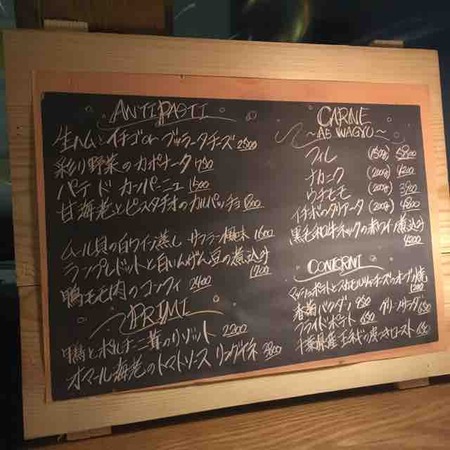 ANTIPASTI
生ハムとイチゴのブッラータチーズ 2500
彩り野菜のカポナータ 750
パテ ド カンパーニュ 1500
甘海老とピスタチオのカルパッチョ 1800
ムール貝の白ワイン蒸し サフラン風味 1600
ランプレドットと白いんげん豆の煮込み 1700
鴨モモ肉のコンフィ 2400
PRIMI
鴨とポルチーニ茸のリゾット 2200
オマール海老のトマトソース リングイネ
CARNE
~A5 WAGYU~
フィレ (150g)
ナカニク (200g) 4200
ウチモモ (200g)
イチボのタリアータ (200g) 4800
黒毛和牛 の赤ワイン煮込み
CONTORNI
とスカモルツァチーズのオーブン焼
1200
香菜パクダン 850 グリーンサラダ
フライドポテト 650
千葉県産 の炭火ロースト 650